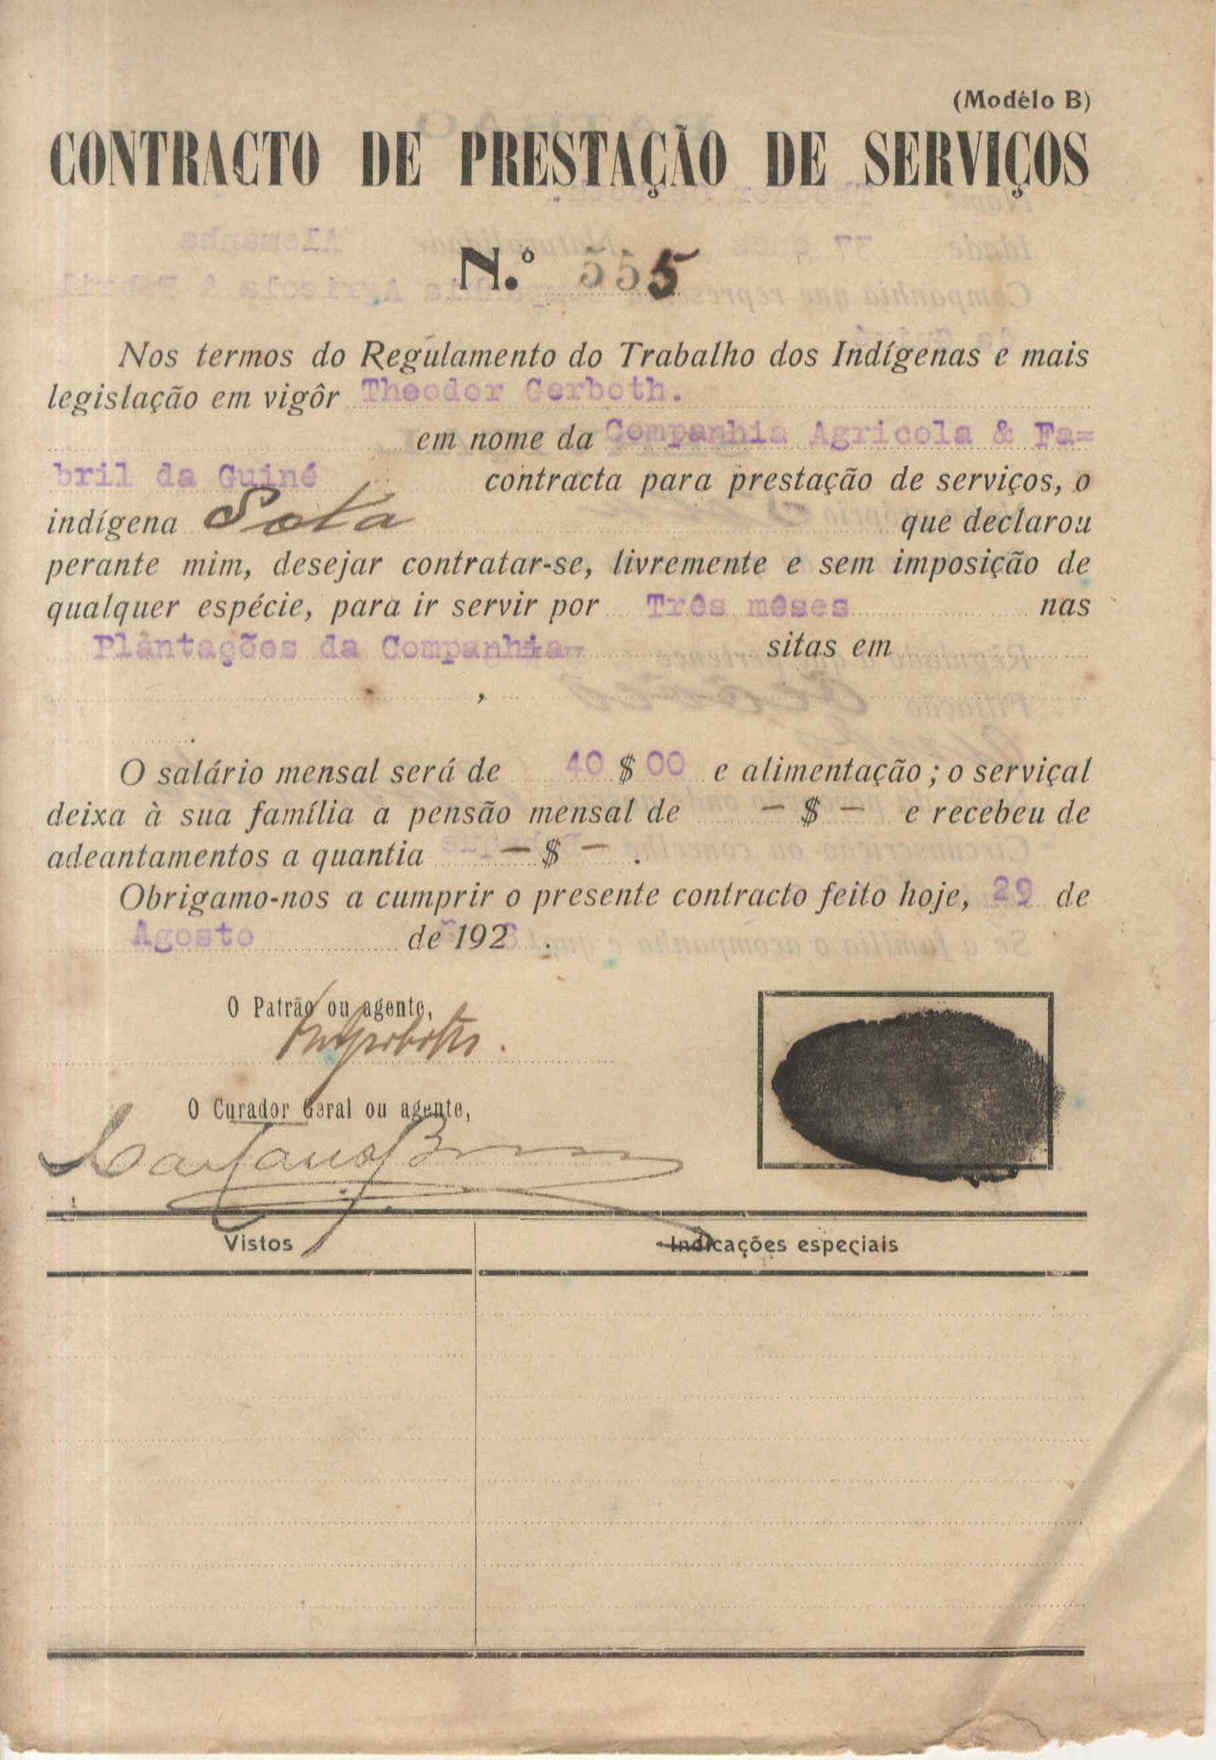 (Modêlo B)
CONTRACTO DE PRESTAÇÃO DE SERVIÇOS
N.º 555
Nos termos do Regulamento do Trabalho dos Indígenas e mais
legislação em vigôr Theodor Gerboth.
em nome da Companhia Agricola & Fa=
bril da Guiné contracta para prestação de serviços, o
indígena Sota que declarou
perante mim, desejar contratar-se, livremente e sem imposição de
qualquer espécie, para ir servir por Três mêses nas
Plântações da Companhia- sitas em
,
O salário mensal será de 40 $ 00 e alimentação; o serviçal
deixa à sua família a pensão mensal de — $ — e recebeu de
adeantamentos a quantia — $ — .
Obrigamo-nos a cumprir o presente contracto feito hoje, 29 de
Agosto de 192 .
O Patrão ou agente,
O Curador Geral ou agente,
Vistos Indicações especiais